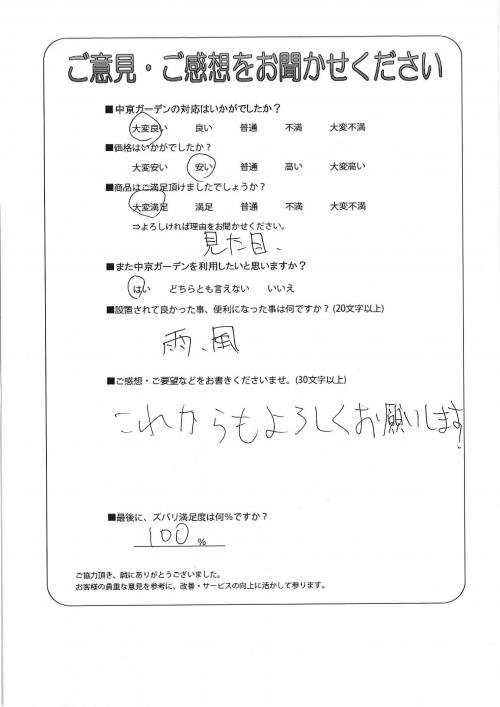 ご意見・ご感想をお聞かせください
■中京ガーデンの対応はいかがでしたか？
大変良い 良い 普通 不満 大変不満
■価格はいかがでしたか？
大変安い 安い 普通 高い 大変高い
■商品はご満足頂けましたでしょうか？
大変満足 満足 普通 不満 大変不満
⇒よろしければ理由をお聞かせください。
見た目、
■また中京ガーデンを利用したいと思いますか？
はい どちらとも言えない いいえ
■設置されて良かった事、便利になった事は何ですか？(20文字以上)
雨、風
■ご感想・ご要望などをお書きくださいませ。(30文字以上)
これからもよろしくお願いします!
■最後に、ズバリ満足度は何％ですか？
100 %
ご協力頂き、誠にありがとうございました。
お客様の貴重な意見を参考に、改善・サービスの向上に活かして参ります。